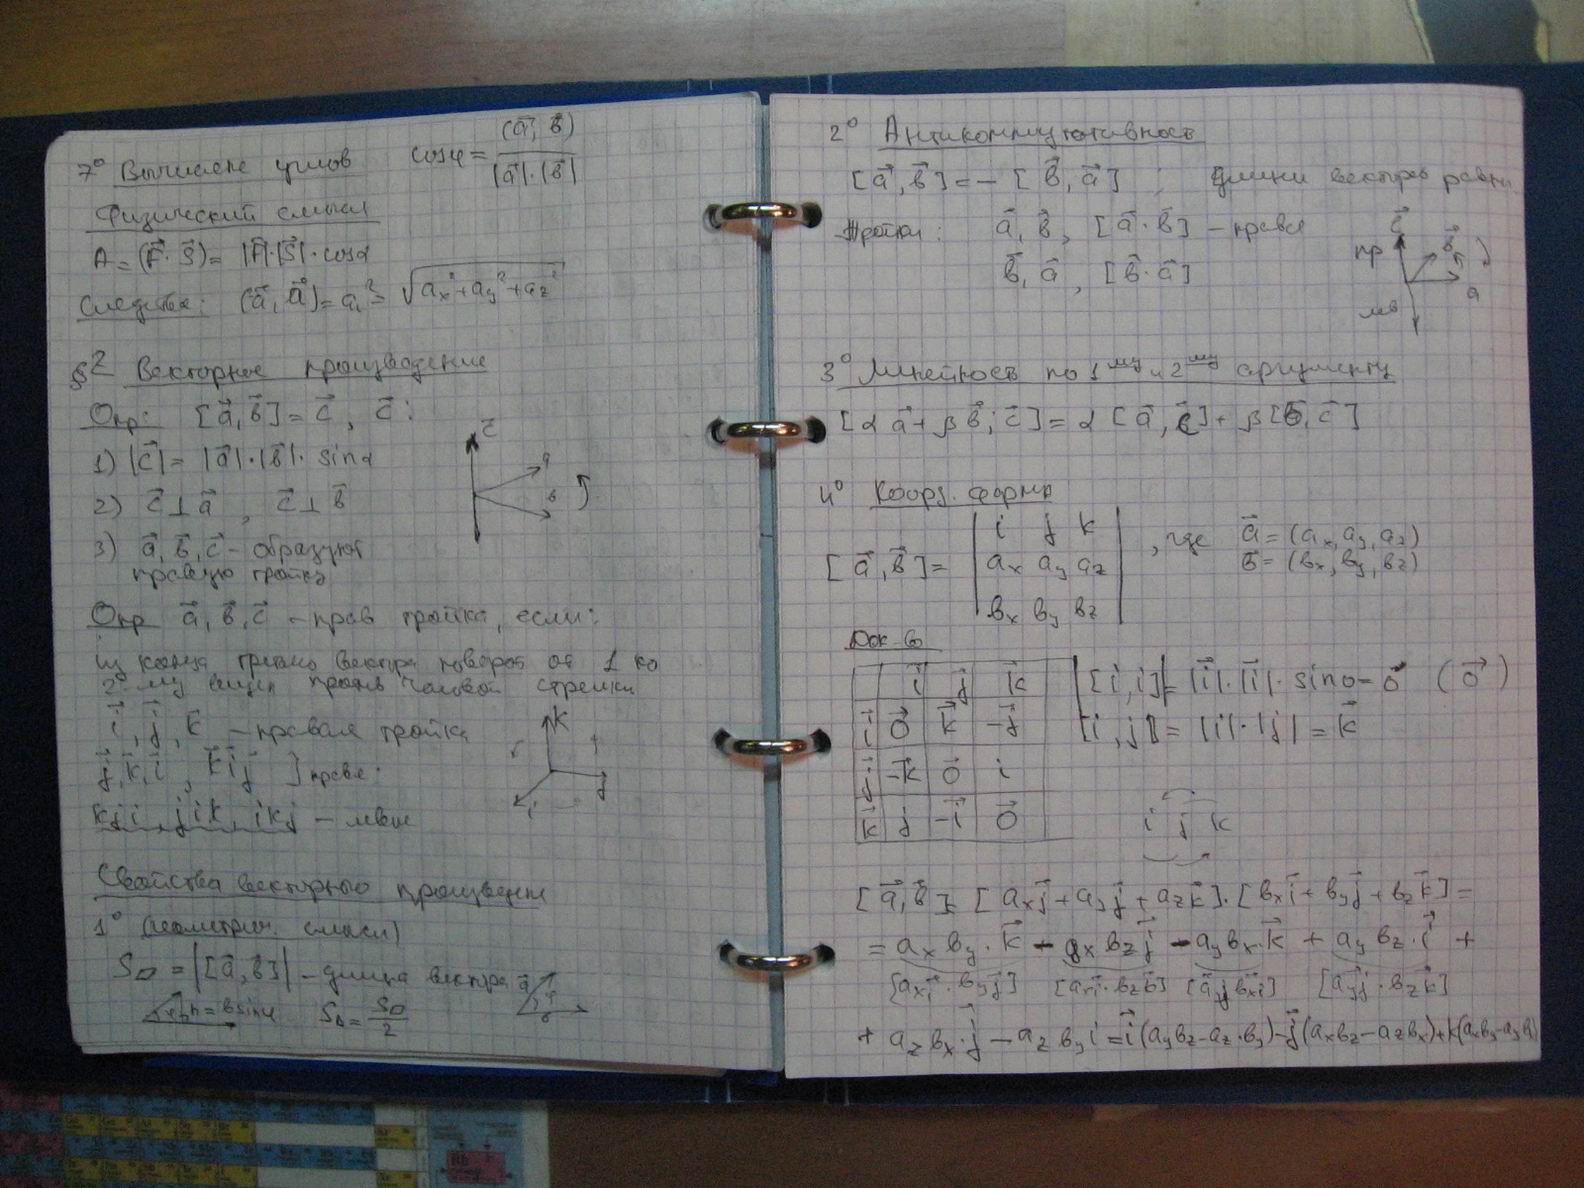 7° Вычислене углов cosφ = (a⃗, b⃗) / |a⃗|·|b⃗|
Физический смысл
A = (F⃗·S⃗) = |F⃗|·|S⃗|·cosα
Следствие: (a⃗, a⃗) = a² = √(aₓ²+a_y²+a_z²)
§2 Векторное произведение
Опр: [a⃗,b⃗] = c⃗, c⃗:
1) |c⃗| = |a⃗|·|b⃗|· sinα
2) c⃗⊥a⃗, c⃗⊥b⃗
3) a⃗, b⃗, c⃗ - образуют
правую тройку
c⃗
a
b
Опр a⃗, b⃗, c⃗ - прав тройка, если:
из конца третьего вектора поворот от 1 ко
2-му виден против часовой стрелки
i⃗, j⃗, k⃗ - правая тройка
j⃗,k⃗,i⃗, k⃗i⃗j⃗ ] правые.
kji, jik, ikj - левые
k
i
j
Свойства векторного произведен
1° (геометрич. смысл)
S▱ = |[a⃗,b⃗]| - длина вектора
h = b sinφ S△ = S▱ / 2
2° Антикоммутативность
[a⃗,b⃗] = - [b⃗,a⃗] ; Длины векторов равны.
Тройки: a⃗, b⃗, [a⃗·b⃗] - правая
b⃗, a⃗, [b⃗·a⃗]
c⃗
пр
b⃗
a
лев
3° Линейность по 1му и 2му аргументу
[αa⃗ + βb⃗; c⃗] = α[a⃗,c⃗] + β[b⃗,c⃗]
4° Коорд. форма
[a⃗,b⃗] = | i j k |
| aₓ a_y a_z |
| bₓ b_y b_z |
, где a⃗ = (aₓ, a_y, a_z)
b⃗ = (bₓ, b_y, b_z)
Док-во
i⃗ j⃗ k⃗
i⃗ 0⃗ k⃗ -j⃗
j⃗ -k⃗ 0⃗ i
k⃗ j -i⃗ 0⃗
|[i,i]| = |i⃗|·|i⃗|· sin0 = 0 (0⃗)
[i,j] = |i|·|j| = k⃗
i j k
[a⃗,b⃗] = [aₓj⃗ + a_yj⃗ + a_zk⃗]·[bₓi⃗ + b_yj⃗ + b_zk⃗] =
= aₓb_y·k⃗ - aₓb_zj⃗ - a_ybₓ·k⃗ + a_yb_z·i⃗ +
[aₓi·b_yj] [aₓi·b_zk] [a_yj bₓi] [a_yj·b_zk]
+ a_zbₓ·j⃗ - a_zb_yi = i⃗(a_yb_z - a_z·b_y) - j⃗(aₓb_z - a_zbₓ) + k(aₓb_y - a_ybₓ)